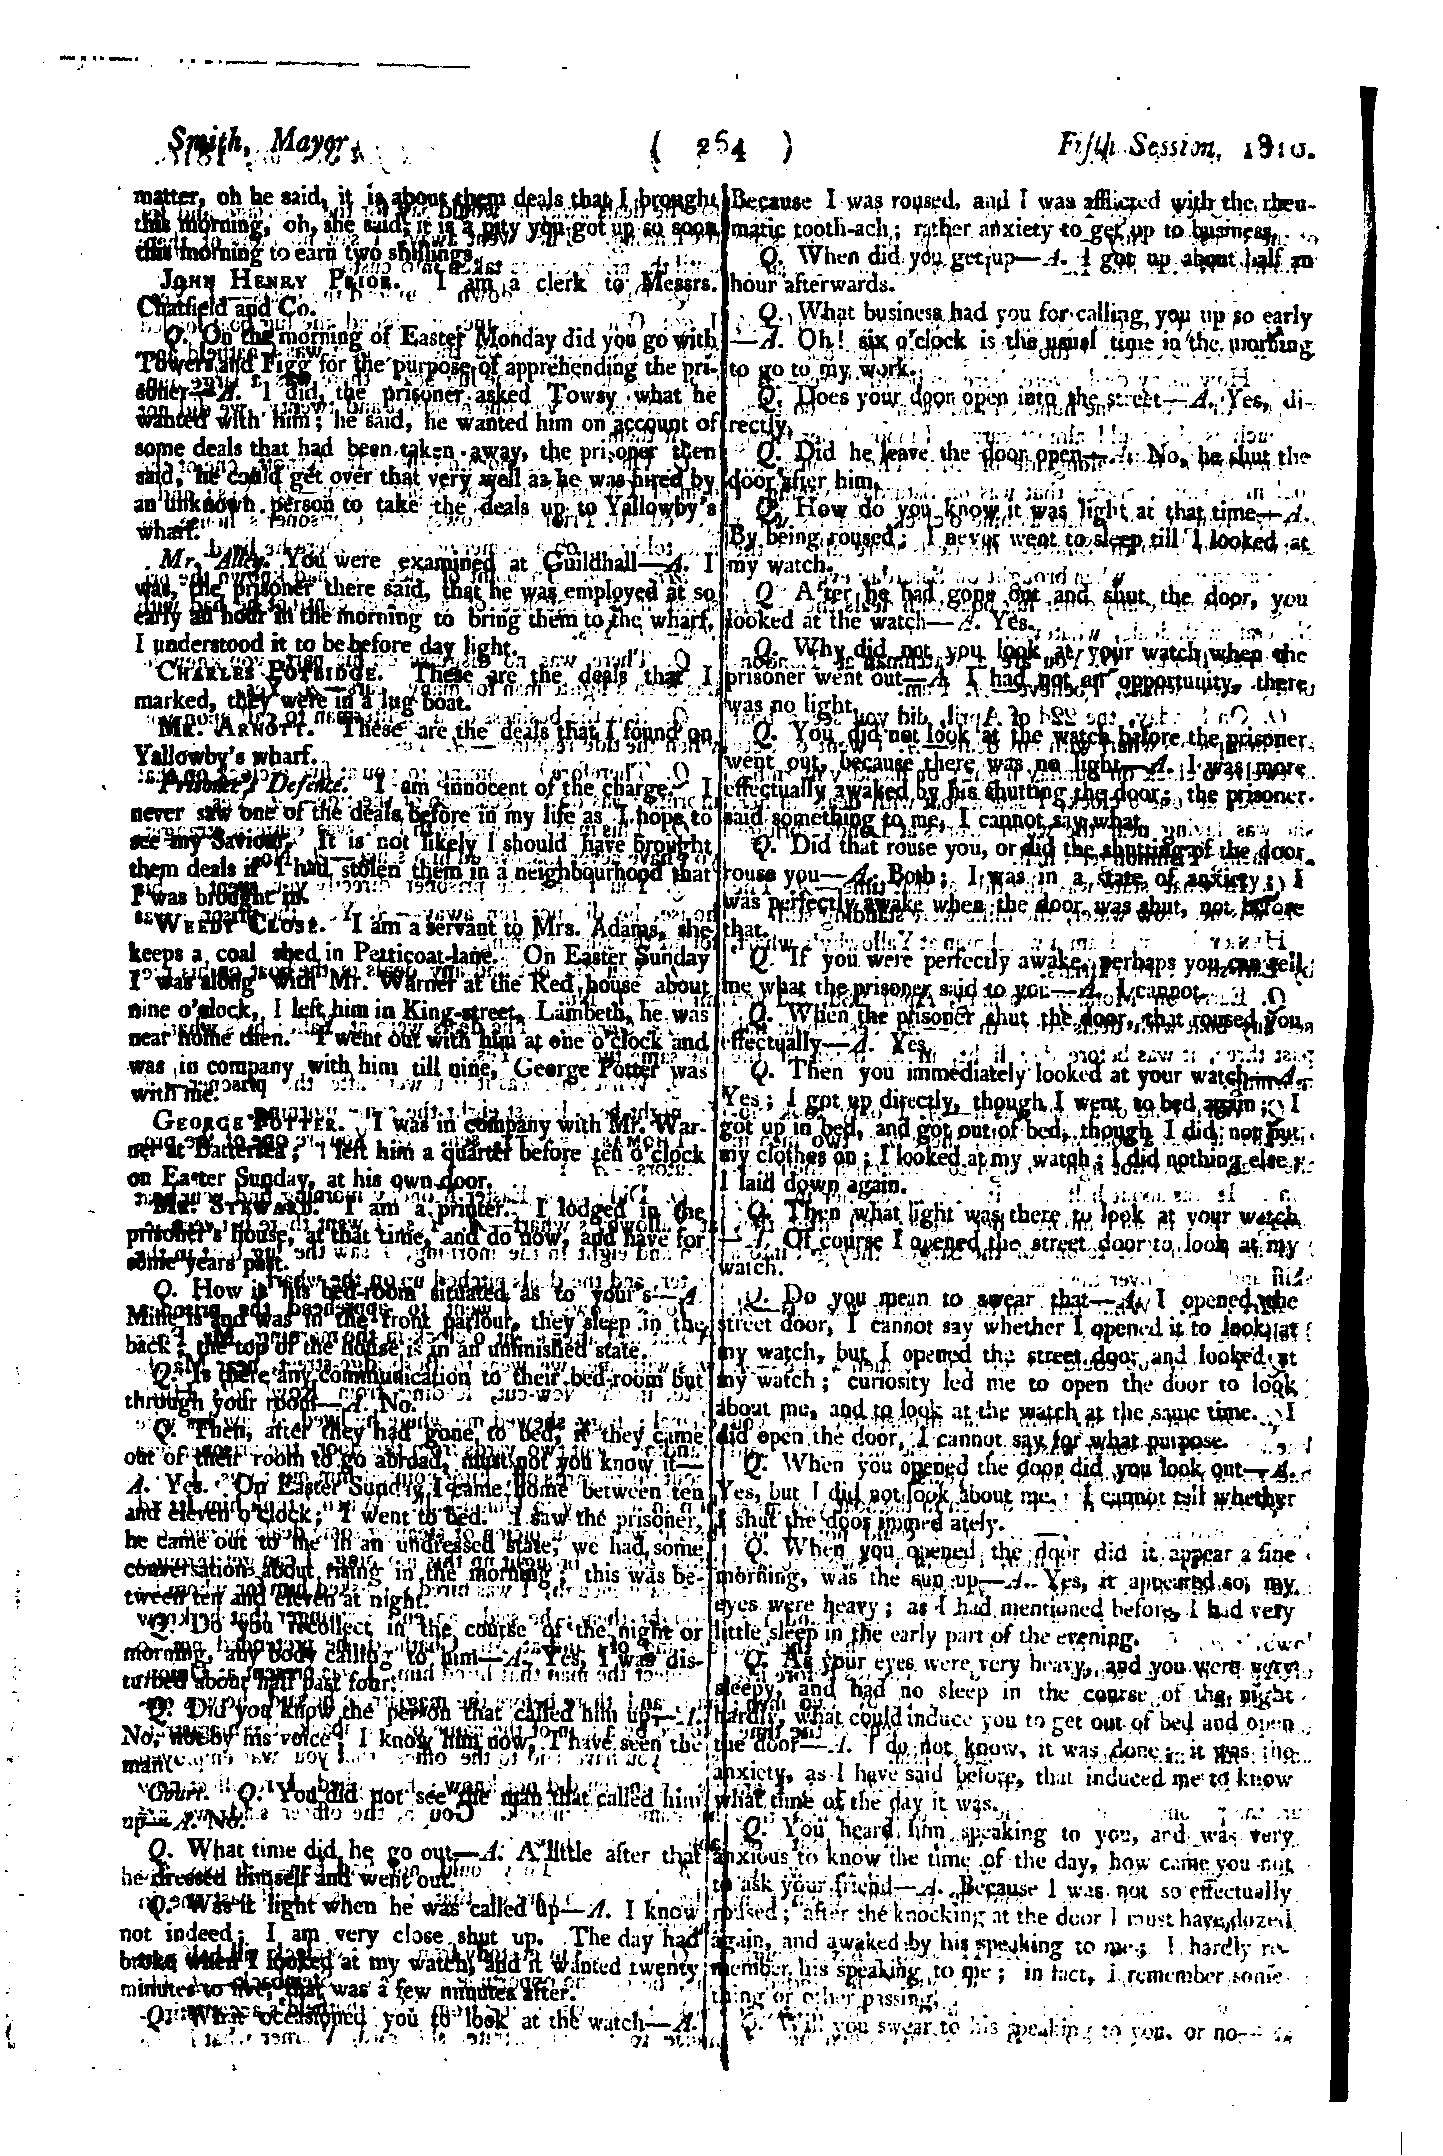 Smith, Mayor.
( 264 )
Fifth Session, 1810.
matter, oh he said, it is about them deals that I brought
this morning, oh, she said, it is a pity you got up so soon
this morning to earn two shillings.
JOHN HENRY PRIOR. I am a clerk to Messrs.
Chatfield and Co.
Q. On the morning of Easter Monday did you go with
Towers and Figg for the purpose of apprehending the pri-
soner—A. I did, the prisoner asked Towsy what he
wanted with him; he said, he wanted him on account of
some deals that had been taken away, the prisoner then
said, he could get over that very well as he was hired by
an unknown person to take the deals up to Yallowby's
wharf.
Mr. Alley. You were examined at Guildhall—A. I
was, the prisoner there said, that he was employed at so
early an hour in the morning to bring them to the wharf,
I understood it to be before day light.
CHARLES POTRIDGE. These are the deals that I
marked, they were in a lug boat.
MR. ARNOTT. These are the deals that I found on
Yallowby's wharf.
Prisoner's Defence. I am innocent of the charge. I
never saw one of the deals before in my life as I hope to
see my Saviour. It is not likely I should have brought
them deals if I had stolen them in a neighbourhood that
I was brought in.
WEEDY CLOSE. I am a servant to Mrs. Adams, she
keeps a coal shed in Petticoat-lane. On Easter Sunday
I was along with Mr. Warner at the Red house about
nine o'clock, I left him in King-street, Lambeth, he was
near home then. I went out with him at one o'clock and
was in company with him till nine, George Potter was
with me.
GEORGE POTTER. I was in company with Mr. War-
ner at Battersea; I left him a quarter before ten o'clock
on Easter Sunday, at his own door.
MR. STEWARD. I am a printer. I lodged in the
prisoner's house, at that time, and do now, and have for
some years past.
Q. How is his bed-room situated as to your's—A.
Mine is and was in the front parlour, they sleep in the
back; the top of the house is in an unfinished state.
Q. Is there any communication to their bed-room but
through your room—A. No.
Q. Then, after they had gone to bed, if they came
out of their room to go abroad, must not you know it—
A. Yes. On Easter Sunday I came home between ten
and eleven o'clock; I went to bed. I saw the prisoner,
he came out to me in an undressed state, we had some
conversation about rising in the morning; this was be-
tween ten and eleven at night.
Q. Do you recollect in the course of the night or
morning, any body calling to him—A. Yes, I was dis-
turbed about half past four.
Q. Did you know the person that called him up—A.
No, not by his voice; I know him now, I have seen the
man.
Court. Q. You did not see the man that called him
up—A. No.
Q. What time did he go out—A. A little after that
he dressed himself and went out.
Q. Was it light when he was called up—A. I know
not indeed; I am very close shut up. The day had
broke when I looked at my watch, and it wanted twenty
minutes to five, that was a few minutes after.
Q. What occasioned you to look at the watch—A.
Because I was roused, and I was afflicted with the rheu-
matic tooth-ach; rather anxiety to get up to business.
Q. When did you get up—A. I got up about half an
hour afterwards.
Q. What business had you for calling you up so early
—A. Oh! six o'clock is the usual time in the morning
to go to my work.
Q. Does your door open into the street—A. Yes, di-
rectly.
Q. Did he leave the door open—A. No, he shut the
door after him.
Q. How do you know it was light at that time—A.
By being roused; I never went to sleep till I looked at
my watch.
Q. After he had gone out and shut the door, you
looked at the watch—A. Yes.
Q. Why did not you look at your watch when the
prisoner went out—A. I had not an opportunity, there
was no light.
Q. You did not look at the watch before the prisoner
went out, because there was no light—A. I was more
effectually awaked by his shutting the door; the prisoner
said something to me, I cannot say what.
Q. Did that rouse you, or did the shutting of the door
rouse you—A. Both; I was in a state of anxiety; I
was perfectly awake when the door was shut, not before
that.
Q. If you were perfectly awake, perhaps you can tell
me what the prisoner said to you—A. I cannot.
Q. When the prisoner shut the door, that roused you
effectually—A. Yes.
Q. Then you immediately looked at your watch—A.
Yes; I got up directly, though I went to bed again; I
got up in bed, and got out of bed, though I did not put
my clothes on; I looked at my watch; I did nothing else;
I laid down again.
Q. Then what light was there to look at your watch
—A. Of course I opened the street door to look at my
watch.
Q. Do you mean to swear that—A. I opened the
street door, I cannot say whether I opened it to look at
my watch, but I opened the street door and looked at
my watch; curiosity led me to open the door to look
about me, and to look at the watch at the same time. I
did open the door, I cannot say for what purpose.
Q. When you opened the door did you look out—A.
Yes, but I did not look about me. I cannot tell whether
I shut the door immediately.
Q. When you opened the door did it appear a fine
morning, was the sun up—A. Yes, it appeared so, my
eyes were heavy; as I had mentioned before, I had very
little sleep in the early part of the evening.
Q. As your eyes were very heavy, and you were very
sleepy, and had no sleep in the course of the night
hardly, what could induce you to get out of bed and open
the door—A. I do not know, it was done; it was the
anxiety, as I have said before, that induced me to know
what time of the day it was.
Q. You heard him speaking to you, and was very
anxious to know the time of the day, how came you not
to ask your friend—A. Because I was not so effectually
roused; after the knocking at the door I must have dozed
again, and awaked by his speaking to me; I hardly re-
member his speaking to me; in fact, I remember some-
thing or other passing.
Q. Will you swear to his speaking to you, or no—